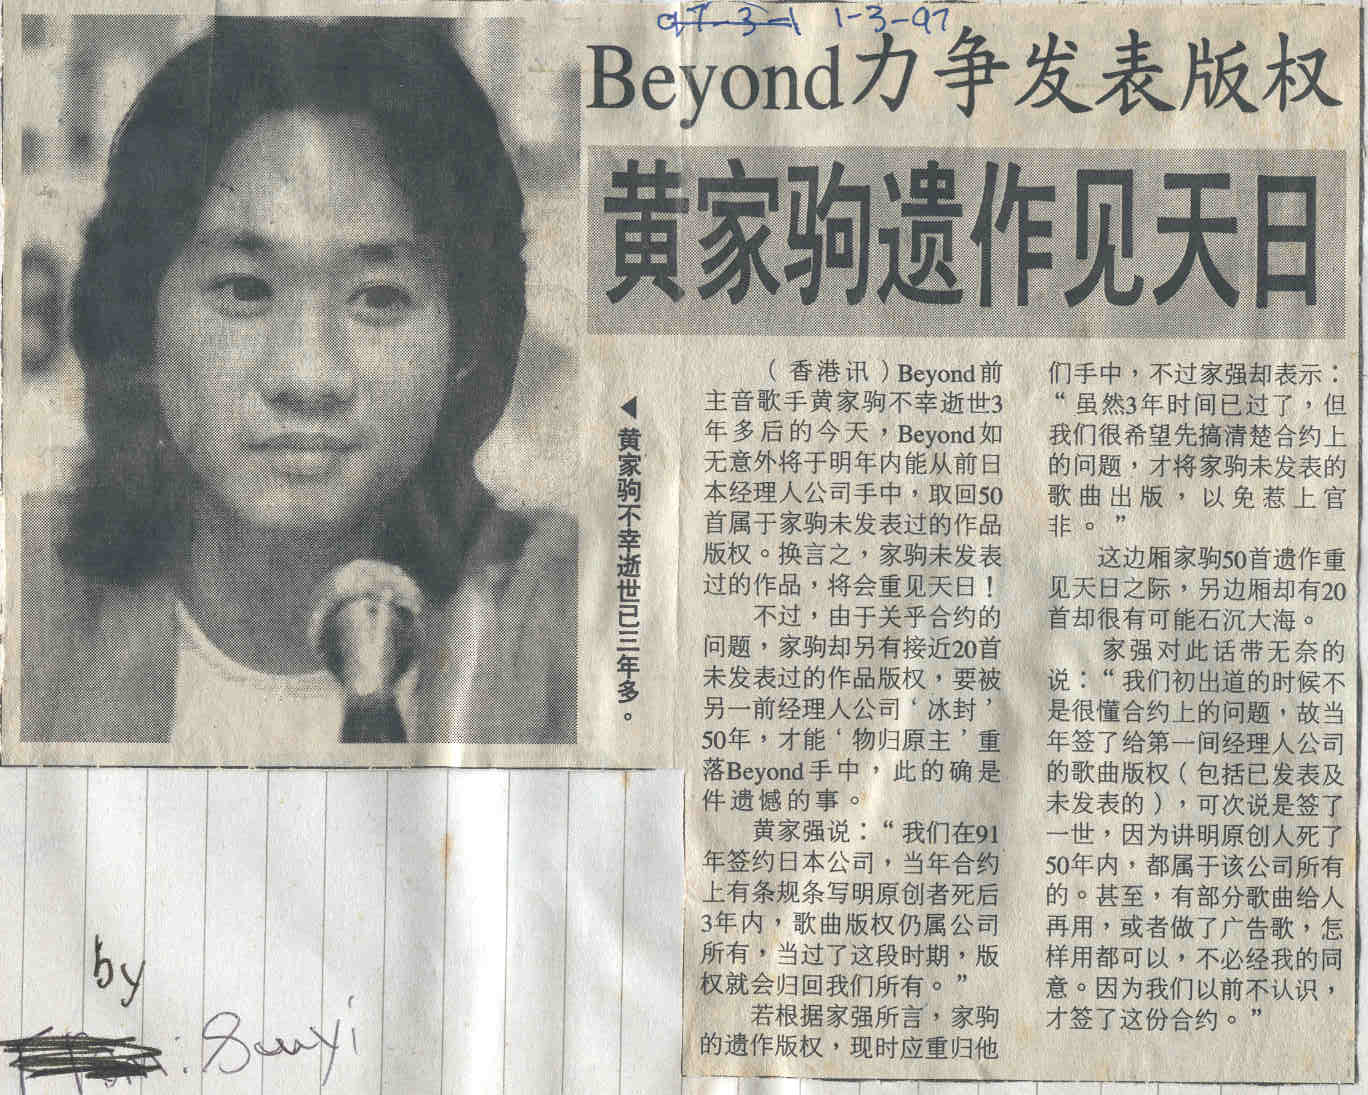 97-3-1 1-3-97
Beyond力争发表版权
黄家驹遗作见天日
◀黄家驹不幸逝世已三年多。
（香港讯）Beyond前
主音歌手黄家驹不幸逝世3
年多后的今天，Beyond如
无意外将于明年内能从前日
本经理人公司手中，取回50
首属于家驹未发表过的作品
版权。换言之，家驹未发表
过的作品，将会重见天日！
不过，由于关乎合约的
问题，家驹却另有接近20首
未发表过的作品版权，要被
另一前经理人公司‘冰封’
50年，才能‘物归原主’重
落Beyond手中，此的确是
件遗憾的事。
黄家强说：“我们在91
年签约日本公司，当年合约
上有条规条写明原创者死后
3年内，歌曲版权仍属公司
所有，当过了这段时期，版
权就会归回我们所有。”
若根据家强所言，家驹
的遗作版权，现时应重归他
们手中，不过家强却表示：
“虽然3年时间已过了，但
我们很希望先搞清楚合约上
的问题，才将家驹未发表的
歌曲出版，以免惹上官
非。”
这边厢家驹50首遗作重
见天日之际，另边厢却有20
首却很有可能石沉大海。
家强对此话带无奈的
说：“我们初出道的时候不
是很懂合约上的问题，故当
年签了给第一间经理人公司
的歌曲版权（包括已发表及
未发表的），可次说是签了
一世，因为讲明原创人死了
50年内，都属于该公司所有
的。甚至，有部分歌曲给人
再用，或者做了广告歌，怎
样用都可以，不必经我的同
意。因为我们以前不认识，
才签了这份合约。”
by